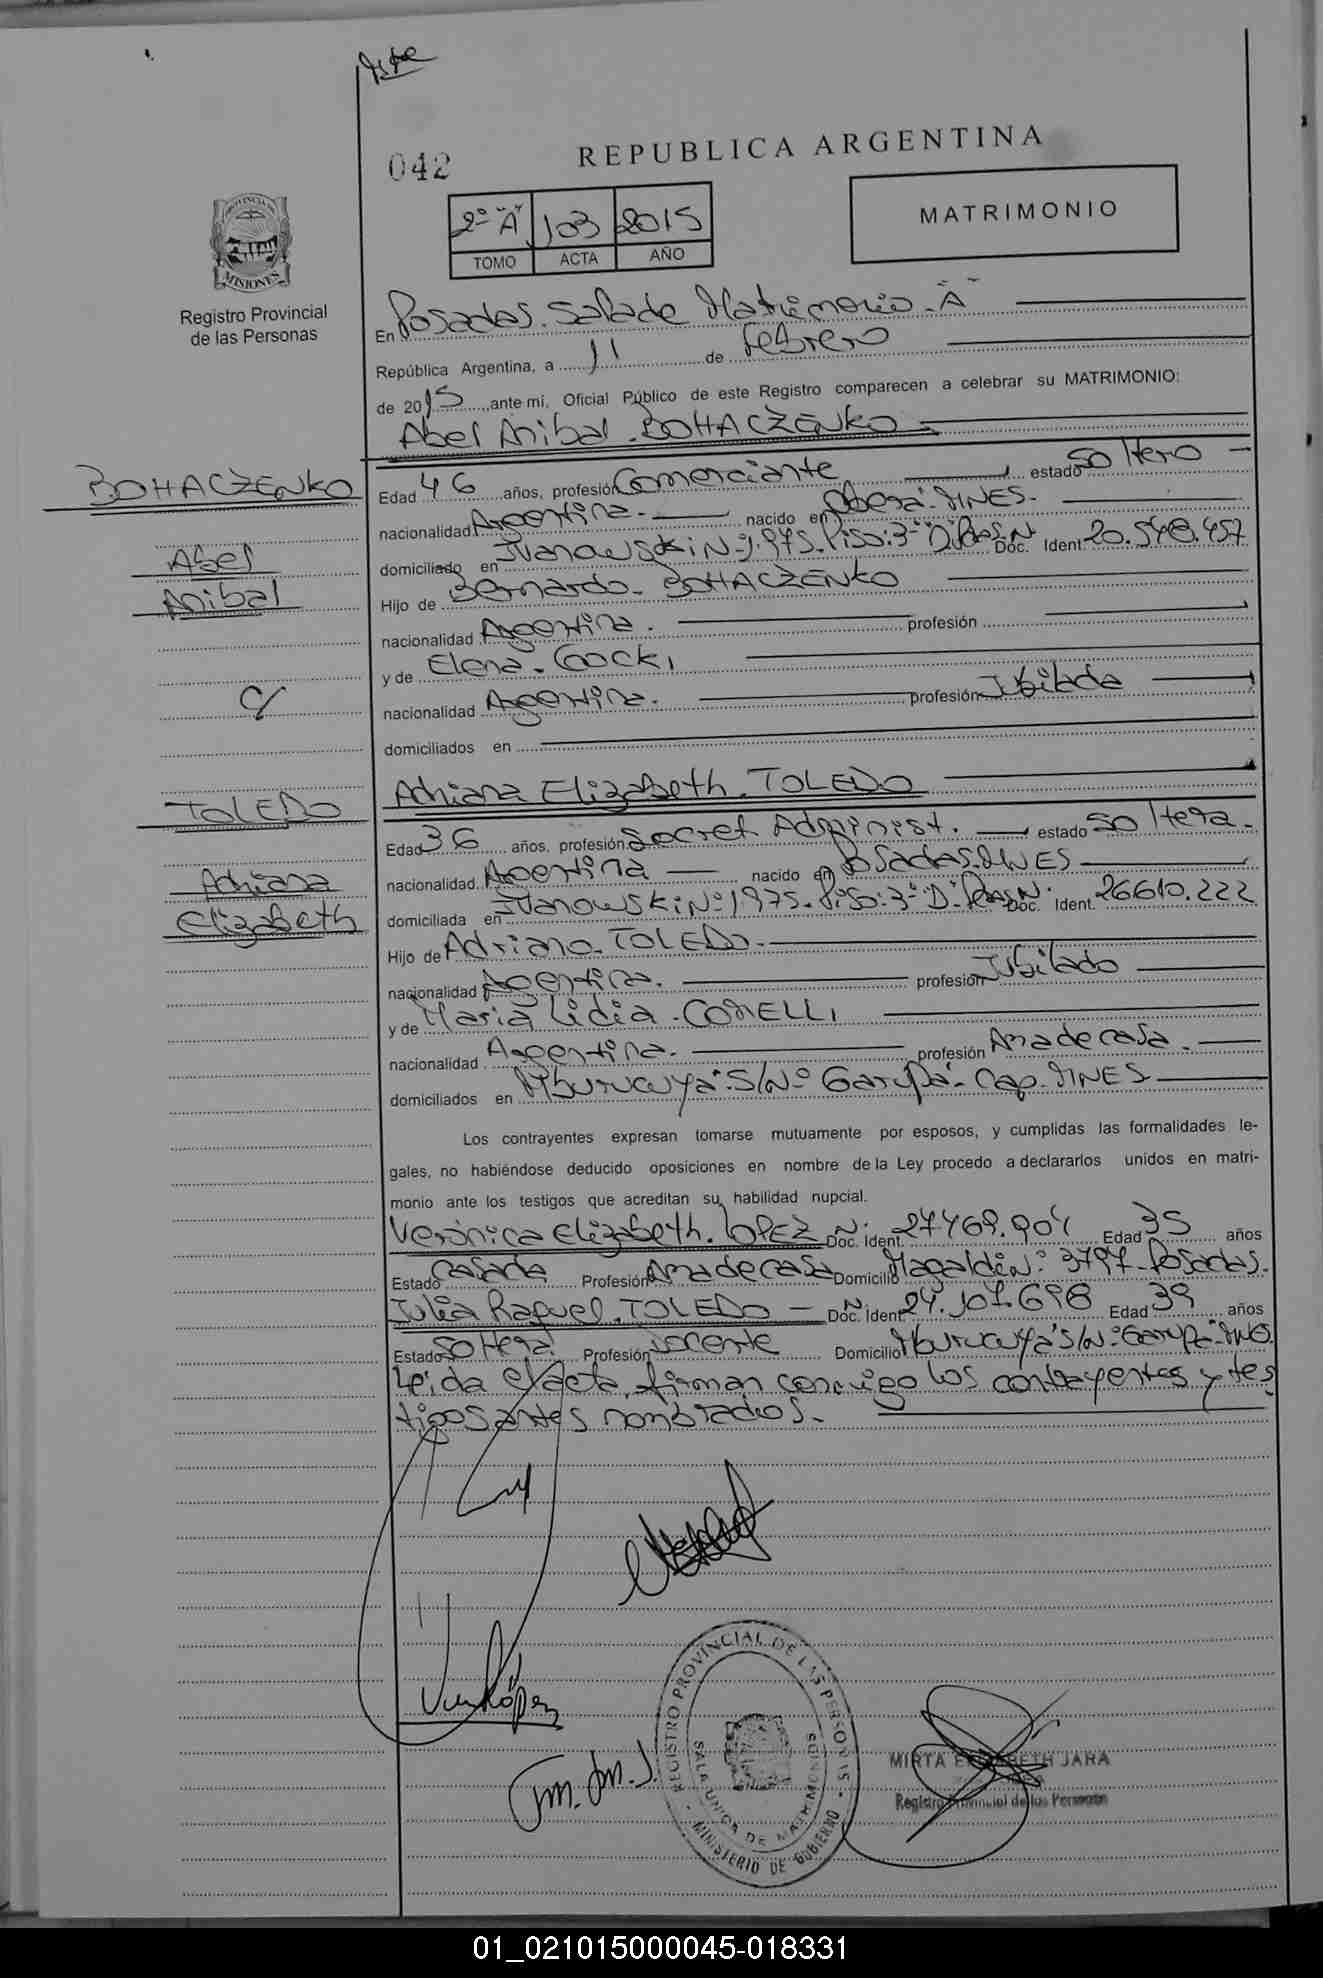 042
REPUBLICA ARGENTINA
2º "A" 103 2015
TOMO ACTA AÑO
MATRIMONIO
PROVINCIA DE
MISIONES
Registro Provincial
de las Personas
En Posadas. Sala de Matrimonio "A"
República Argentina, a 11 de Febrero
de 2015, ante mi, Oficial Público de este Registro comparecen a celebrar su MATRIMONIO:
Abel Anibal. BOHACZENKO
BOHACZENKO
Abel
Anibal
c/
TOLEDO
Adriana
Elizabeth
Edad 46 años, profesión Comerciante estado Soltero
nacionalidad Argentina. nacido en Oberá. MNES.
domiciliado en Ivanowski Nº 1.975. Piso: 3º "D". Pdas. Nº Doc. Ident. 20.548.457
Hijo de Bernardo. BOHACZENKO
nacionalidad Argentina. profesión
y de Elena. GOCKI
nacionalidad Argentina. profesión Jubilada
domiciliados en
Adriana Elizabeth. TOLEDO
Edad 36 años, profesión Secret. Administ. estado Soltera.
nacionalidad Argentina nacido en Posadas. MNES
domiciliada en Ivanowski Nº 1975. Piso: 3º "D". Pdas. Nº Doc. Ident. 26610.222
Hijo de Adriano. TOLEDO.
nacionalidad Argentina. profesión Jubilado
y de Maria Lidia. CORELLI
nacionalidad Argentina. profesión Ama de casa.
domiciliados en Mburucuyá S/Nº Garupá. Cap. MNES
Los contrayentes expresan tomarse mutuamente por esposos, y cumplidas las formalidades le-
gales, no habiéndose deducido oposiciones en nombre de la Ley procedo a declararlos unidos en matri-
monio ante los testigos que acreditan su habilidad nupcial.
Verónica Elizabeth. LOPEZ Nº Doc. Ident. 27469.904 Edad 35 años
Estado Casada Profesión Ama de casa Domicilio Magaldi Nº 3797. Posadas.
Julia Raquel. TOLEDO Nº Doc. Ident. 24.107.698 Edad 39 años
Estado Soltera Profesión Docente Domicilio Mburucuyá S/Nº Garupá
Leida el acta, firman conmigo los contrayentes y tes
tigos antes nombrados.
REGISTRO PROVINCIAL DE LAS PERSONAS
SALA UNICA DE MATRIMONIOS
MINISTERIO DE GOBIERNO
MIRTA ELIZABETH JARA
Registro Provincial de las Personas
01_021015000045-018331